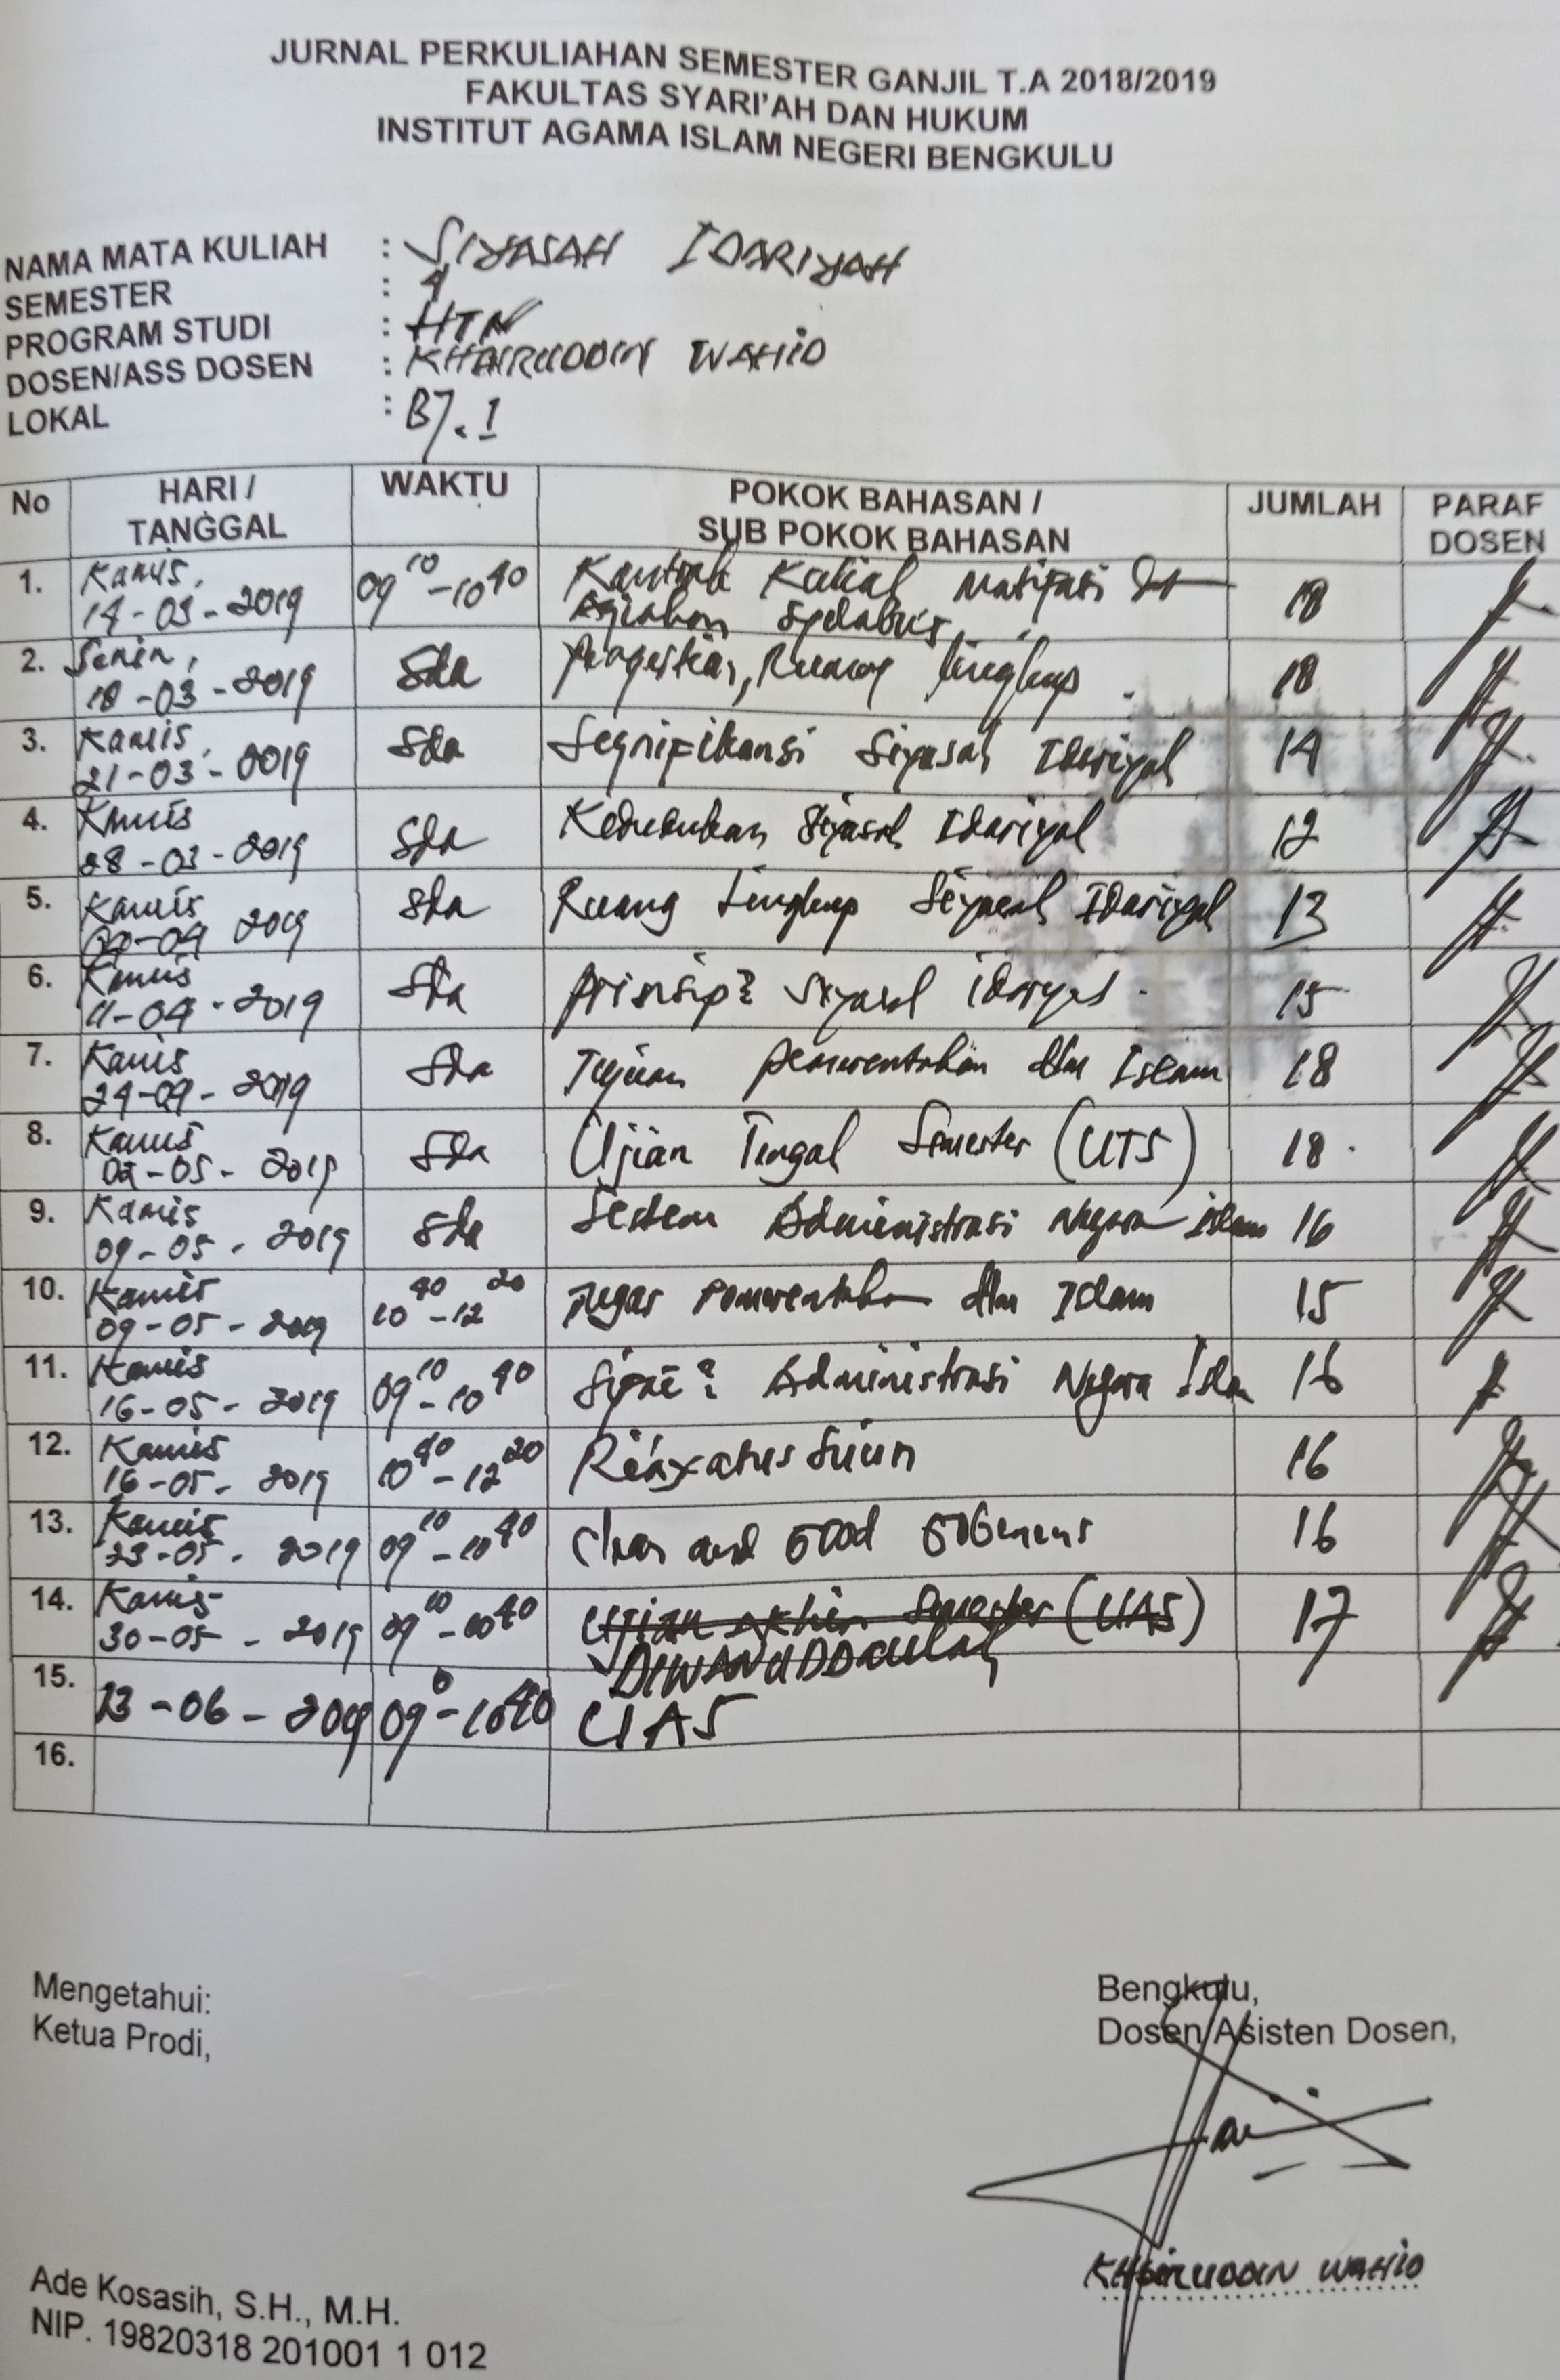 JURNAL PERKULIAHAN SEMESTER GANJIL T.A 2018/2019
FAKULTAS SYARI'AH DAN HUKUM
INSTITUT AGAMA ISLAM NEGERI BENGKULU
NAMA MATA KULIAH : SIYASAH IDARIYAH
SEMESTER : 4
PROGRAM STUDI : HTN
DOSEN/ASS DOSEN : KHAIRUDDIN WAHID
LOKAL : B7.1
No HARI / TANGGAL WAKTU POKOK BAHASAN / SUB POKOK BAHASAN JUMLAH PARAF DOSEN
1. Kamis, 14-03-2019 09 10 - 10 40 Kontrak Kuliah Motivasi Syelabus 18
2. Senin, 18-03-2019 Sda Pengertian, Ruang lingkup 18
3. Kamis, 21-03-2019 Sda Segnifikansi Siyasah Idariyah 14
4. Kamis 28-03-2019 Sda Kedudukan Siyasah Idariyah 12
5. Kamis 04-04 2019 Sda Ruang Lingkup Siyasah Idariyah 13
6. Kamis 11-04-2019 Sda prinsip2 Siyasah idariyah 15
7. Kamis 24-04-2019 Sda Tujuan pemerentahan dlm Islam 18
8. Kamis 02-05-2019 Sda Ujian Tengah Semester (UTS) 18
9. Kamis 09-05-2019 Sda Sistem Administrasi Negara islam 16
10. Kamis 09-05-2019 10 40 - 12 20 Tugas Pemerentahan dlm Islam 15
11. Kamis 16-05-2019 09 10 - 10 40 Sifat2 Administrasi Negara Islam 16
12. Kamis 16-05-2019 10 40 - 12 20 16
13. Kamis 23-05-2019 09 10 - 10 40 and Good 16
14. Kamis 30-05-2019 09 10 - 10 40 Ujian Akhir Semester (UAS) 17
DIWANUDDAULAH
15. 13-06-2019 09 - 10 40 UAS
16.
Mengetahui:
Ketua Prodi,
Bengkulu,
Dosen/Asisten Dosen,
KHAIRUDDIN WAHID
Ade Kosasih, S.H., M.H.
NIP. 19820318 201001 1 012